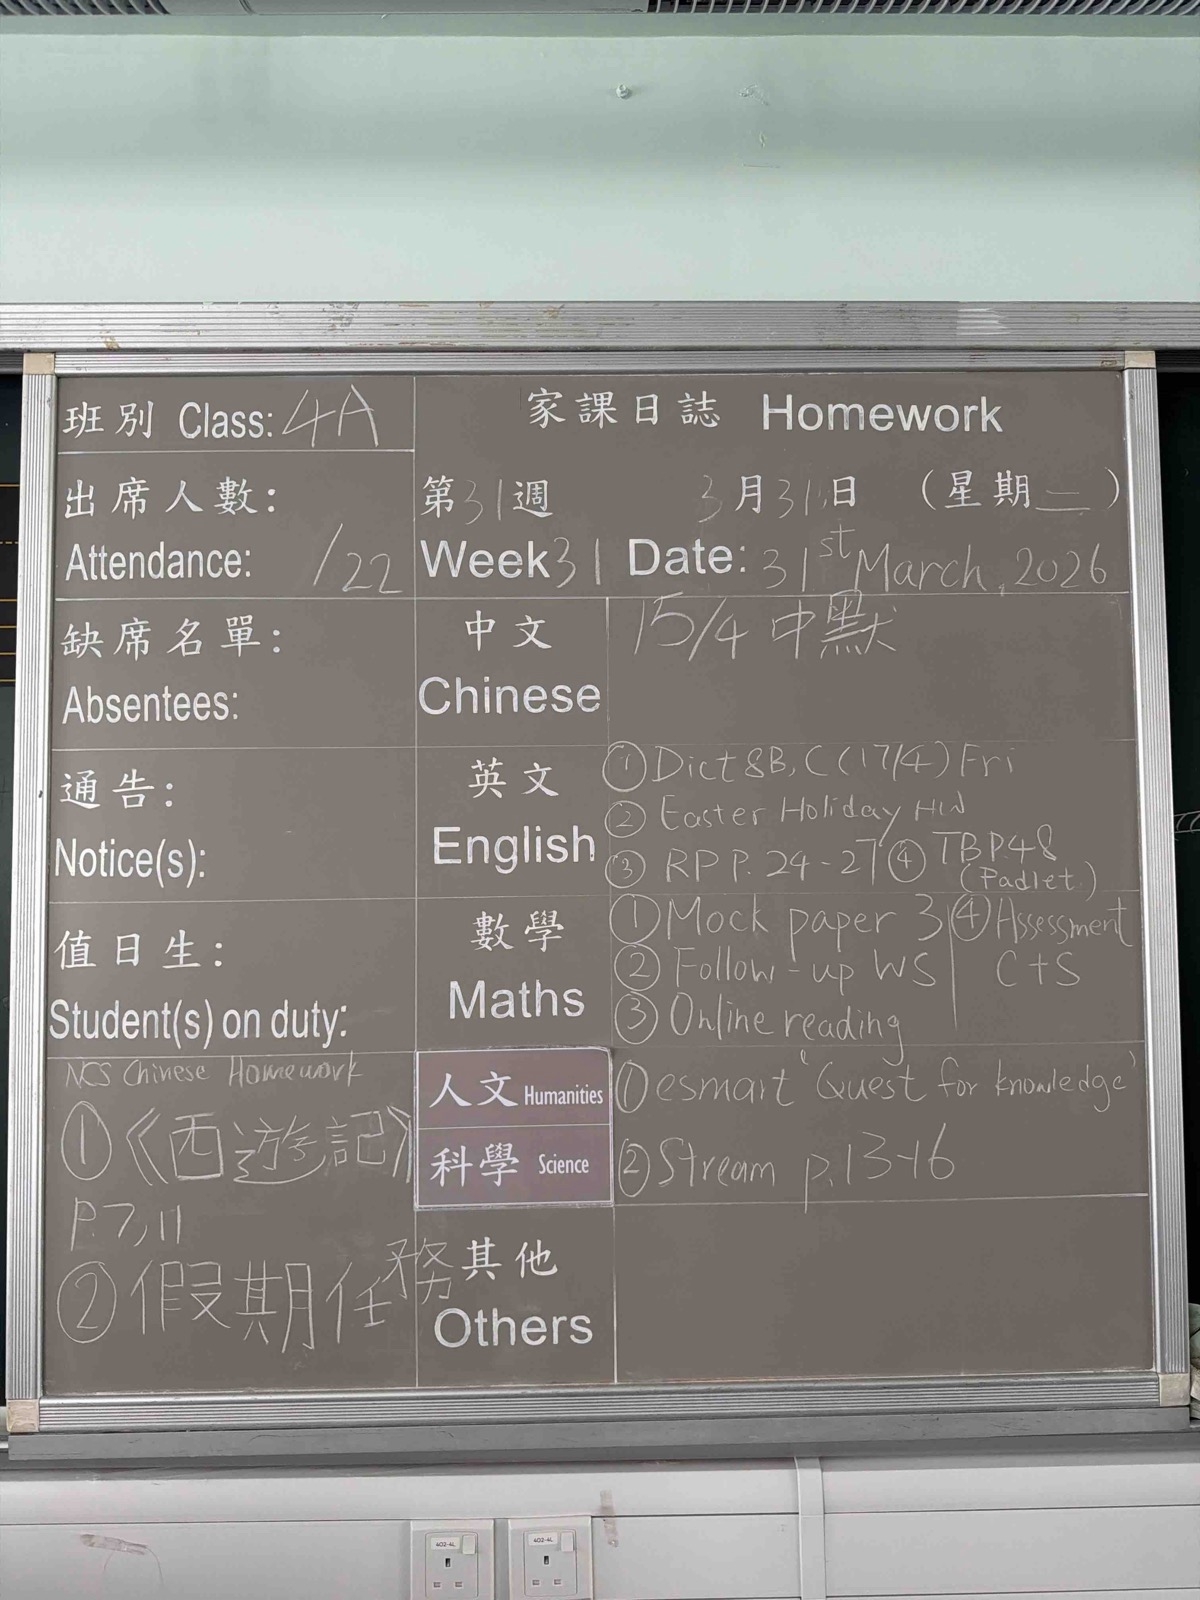 班別 Class: 4A
家課日誌 Homework
出席人數:
Attendance: /22
第31週 3月31日 (星期二)
Week 31 Date: 31st March, 2026
缺席名單:
Absentees:
中文
Chinese
15/4 中默
通告:
Notice(s):
英文
English
① Dict 8B, C (17/4) Fri
② Easter Holiday HW
③ RP P. 24-27 ④ TB P.48
(Padlet)
值日生:
Student(s) on duty:
數學
Maths
① Mock paper 3
② Follow-up WS
③ Online reading
④ Assessment
C+S
NCS Chinese Homework
①《西遊記》
P.7,11
② 假期任務
人文 Humanities
科學 Science
① esmart 'Quest for knowledge'
② Stream p.13-16
其他
Others
402-4L
402-4L